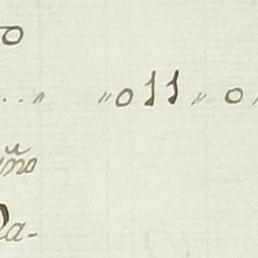 o
.. „ „ 0 11 „ 0
ño
Da-